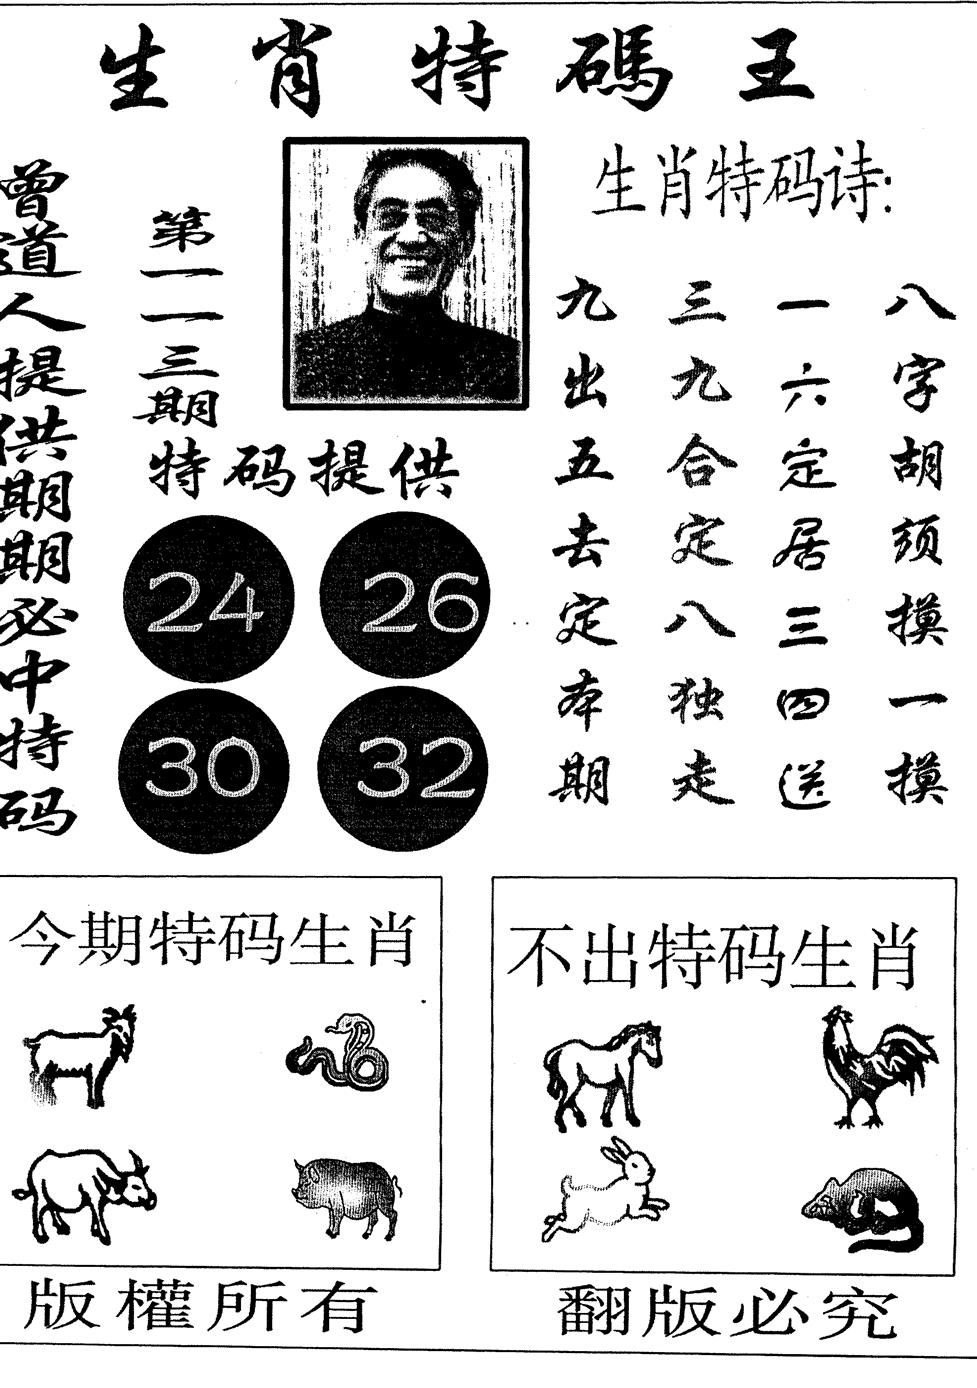 生肖特碼王
曾道人提供期期必中特码
第一一三期
生肖特码诗:
八字胡须摸一摸
一六定居三四送
三九合定八独走
九出五去定本期
特码提供
24 26
30 32
今期特码生肖
不出特码生肖
版權所有
翻版必究